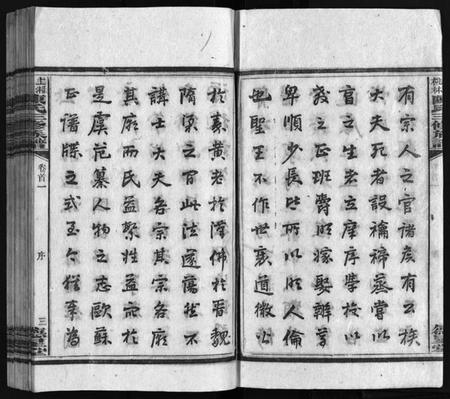 有宗人之官諸侯有公族
大夫死者設禘祫蒸嘗以
享之生者立庠序學校以
教之正班爵明嫁娶辨等
卑順少長此所以明人倫
也聖王不作世衰道微公
於秦黃老於漢佛於晉魏
隋梁之間此法遂蕩然不
講士大夫各宗其宗各廟
其廟而氏益繁姓益亦於
是虞范纂人物之志歐蘇
正譜牒之式至今猶奉為
卷首一
序
三